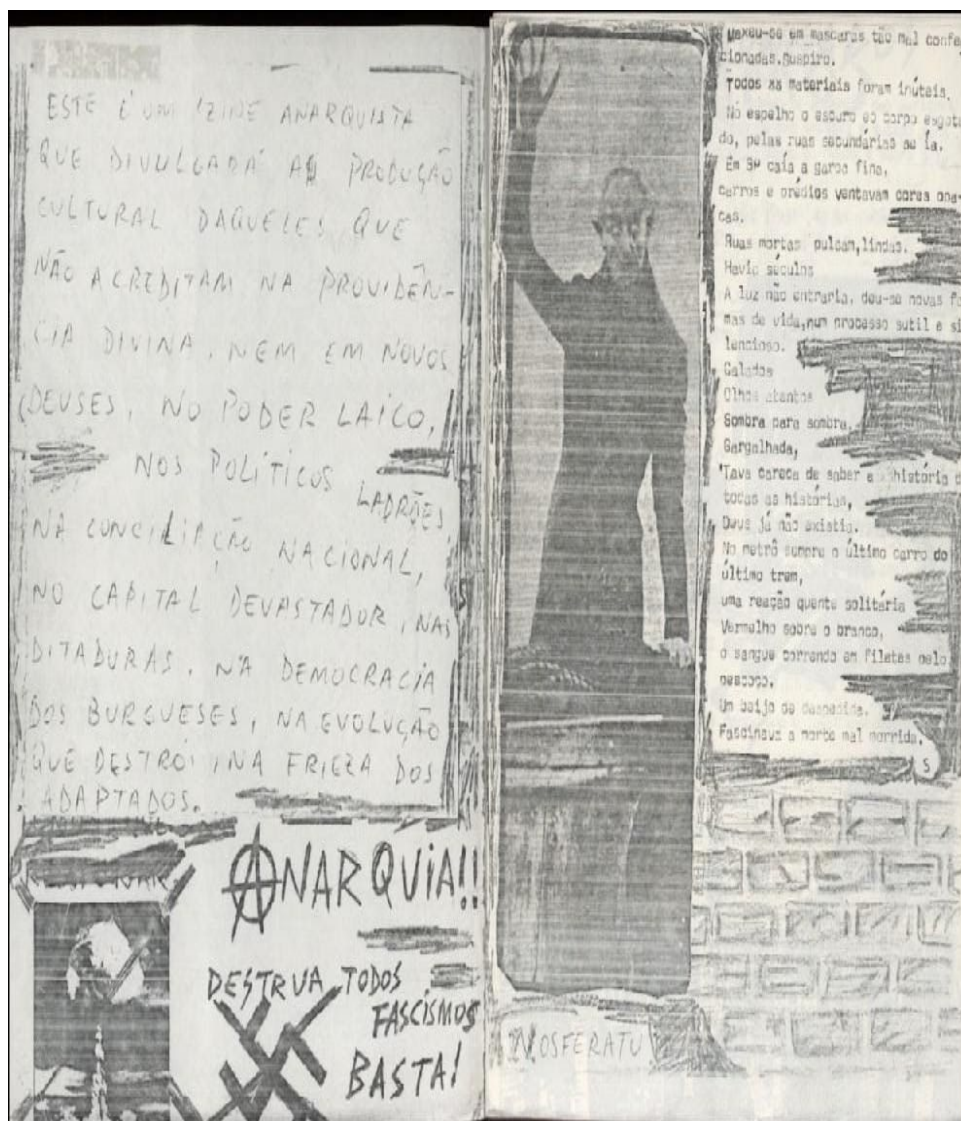 ESTE É UM ZINE ANARQUISTA
QUE DIVULGARÁ A PRODUÇÃO
CULTURAL DAQUELES QUE
NÃO ACREDITAM NA PROVIDÊN-
CIA DIVINA, NEM EM NOVOS
DEUSES, NO PODER LAICO,
NOS POLÍTICOS
LADRÕES
NA CONCILIAÇÃO NACIONAL,
NO CAPITAL DEVASTADOR, NAS
DITADURAS, NA DEMOCRACIA
DOS BURGUESES, NA EVOLUÇÃO
QUE DESTRÓI, NA FRIEZA DOS
ADAPTADOS.
ANARQUIA!!
DESTRUA TODOS
FASCISMOS
BASTA!
em mascaras tão mal confe
cionadas. Suspiro.
Todos os materiais foram inúteis.
No espelho o escuro eo corpo esgota
do, pelas ruas secundárias se ía.
Em SP caía a garoa fina,
carros e prédios ventavam cores opa-
cas.
Ruas mortas pulsam, lindas.
Havia séculos
A luz não entraria, deu-se novas fo
mas de vida, num processo sutil e si
lencioso.
Calados
Olhos atentos
Sombra para sombra.
Gargalhada,
Tava careca de saber a história d
todas as histórias,
Deus já não existia.
No metrô sempre o último carro do
último trem,
uma reação quente solitária
Vermelho sobre o branco,
o sangue correndo em filetes pelo
pescoço.
Um beijo de despedida.
Fascinava a morte mal morrida.
5
NOSFERATU